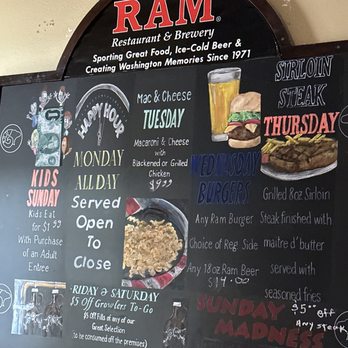 RAM®
Restaurant & Brewery
Sporting Great Food, Ice-Cold Beer &
Creating Washington Memories Since 1971
KIDS
SUNDAY
Kids Eat
for $1.99
With Purchase
of an Adult
Entree
HAPPY HOUR
MONDAY
ALL DAY
Served
Open
To
Close
Mac & Cheese
TUESDAY
Macaroni & Cheese
with
Blackened or Grilled
Chicken
$9.99
WEDNESDAY
BURGERS
Any Ram Burger
Choice of Reg Side
Any 18oz Ram Beer
$14.00
SIRLOIN
STEAK
THURSDAY
Grilled 8oz Sirloin
Steak finished with
maitre d' butter
served with
seasoned fries
FRIDAY & SATURDAY
$5 Off Growlers To-Go
$5 Off Fills of any of our
Great Selection
(to be consumed off the premises)
SUNDAY
MADNESS
$5.00 off
Any steak